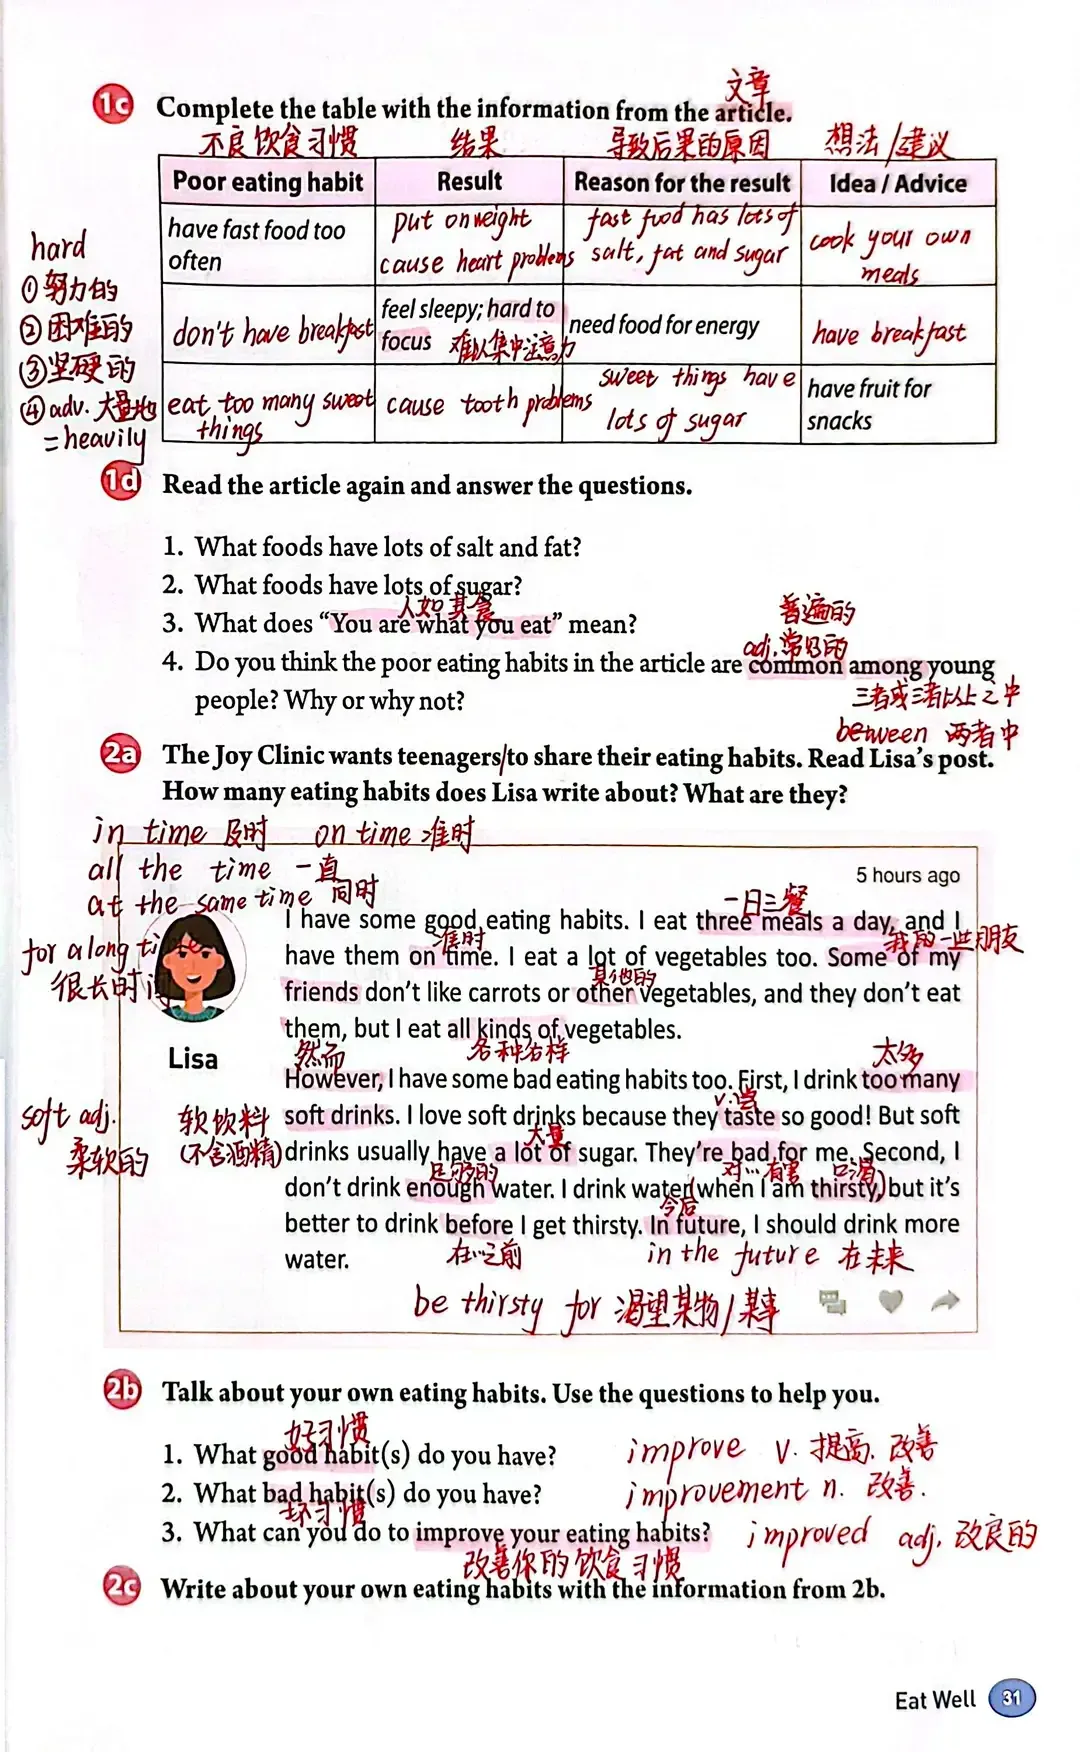 文章
1c Complete the table with the information from the article.
不良饮食习惯 结果 导致后果的原因 想法/建议
Poor eating habit Result Reason for the result Idea / Advice
have fast food too often
put on weight
cause heart problems
fast food has lots of
salt, fat and sugar
cook your own
meals
hard
①努力的
②困难的
③坚硬的
④adv. 大量地
=heavily
don't have breakfast
feel sleepy; hard to
focus 难以集中注意力
need food for energy
have breakfast
eat too many sweet
things
cause tooth problems
sweet things have
lots of sugar
have fruit for
snacks
1d Read the article again and answer the questions.
1. What foods have lots of salt and fat?
2. What foods have lots of sugar?
人如其食
3. What does “You are what you eat” mean?
普遍的
adj.常见的
4. Do you think the poor eating habits in the article are common among young
people? Why or why not?
三者或三者以上之中
between 两者中
2a The Joy Clinic wants teenagers/to share their eating habits. Read Lisa’s post.
How many eating habits does Lisa write about? What are they?
in time 及时 on time 准时
all the time 一直
at the same time 同时
for a long time
很长时间
5 hours ago
一日三餐
I have some good eating habits. I eat three meals a day, and I
准时 我的一些朋友
have them on time. I eat a lot of vegetables too. Some of my
其他的
friends don’t like carrots or other vegetables, and they don’t eat
them, but I eat all kinds of vegetables.
Lisa
然而 各种各样 太多
However, I have some bad eating habits too. First, I drink too many
v.尝
soft adj.
柔软的
软饮料
(不含酒精)
soft drinks. I love soft drinks because they taste so good! But soft
大量
drinks usually have a lot of sugar. They’re bad for me. Second, I
足够的 对…有害 口渴
don’t drink enough water. I drink water(when I am thirsty,)but it’s
今后
better to drink before I get thirsty. In future, I should drink more
water.
在…之前 in the future 在未来
be thirsty for 渴望某物/某事
2b Talk about your own eating habits. Use the questions to help you.
好习惯
1. What good habit(s) do you have?
improve v. 提高. 改善
2. What bad habit(s) do you have?
坏习惯
improvement n. 改善.
3. What can you do to improve your eating habits?
improved adj. 改良的
改善你的饮食习惯
2c Write about your own eating habits with the information from 2b.
Eat Well 31